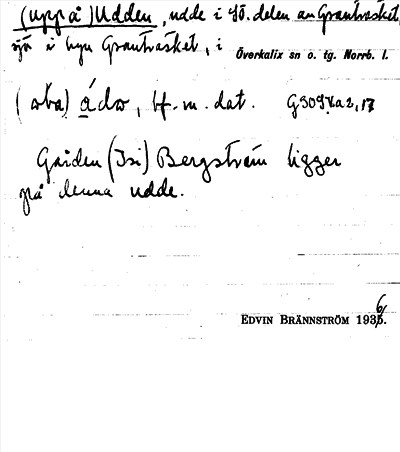 (uppå) Udden, udde i sö. delen av Granträsket,
sjö i byn Granträsket, i Överkalix sn o. tg. Norrb. l.
ádw, bf. m. dat.
Gården (Isi) Bergström ligger
på denna udde.
EDVIN BRÄNNSTRÖM 1936.